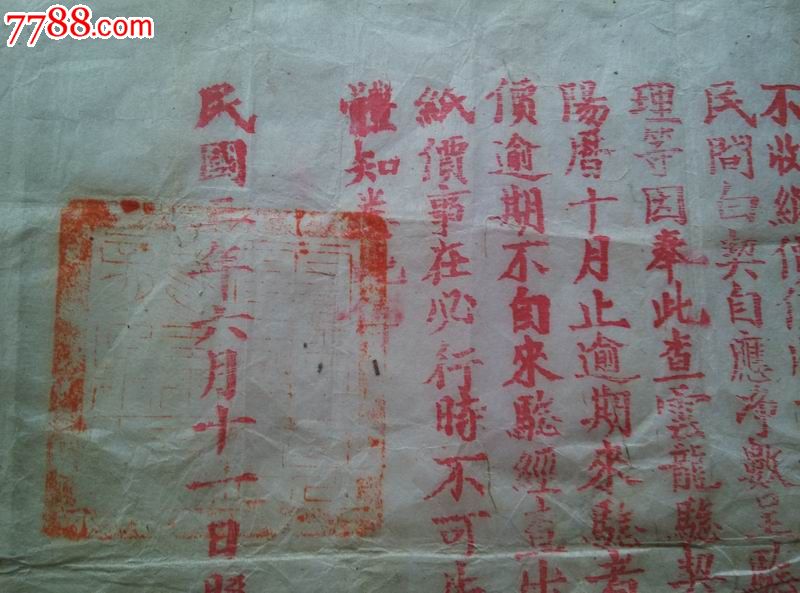 7788.com
不收紙價
民間白契自應
理等因奉此查雲龍驗契
陽曆十月止逾期來驗者
價逾期不自來驗經查出
紙價事在必行時不可失
體知悉
民國三年六月十一日